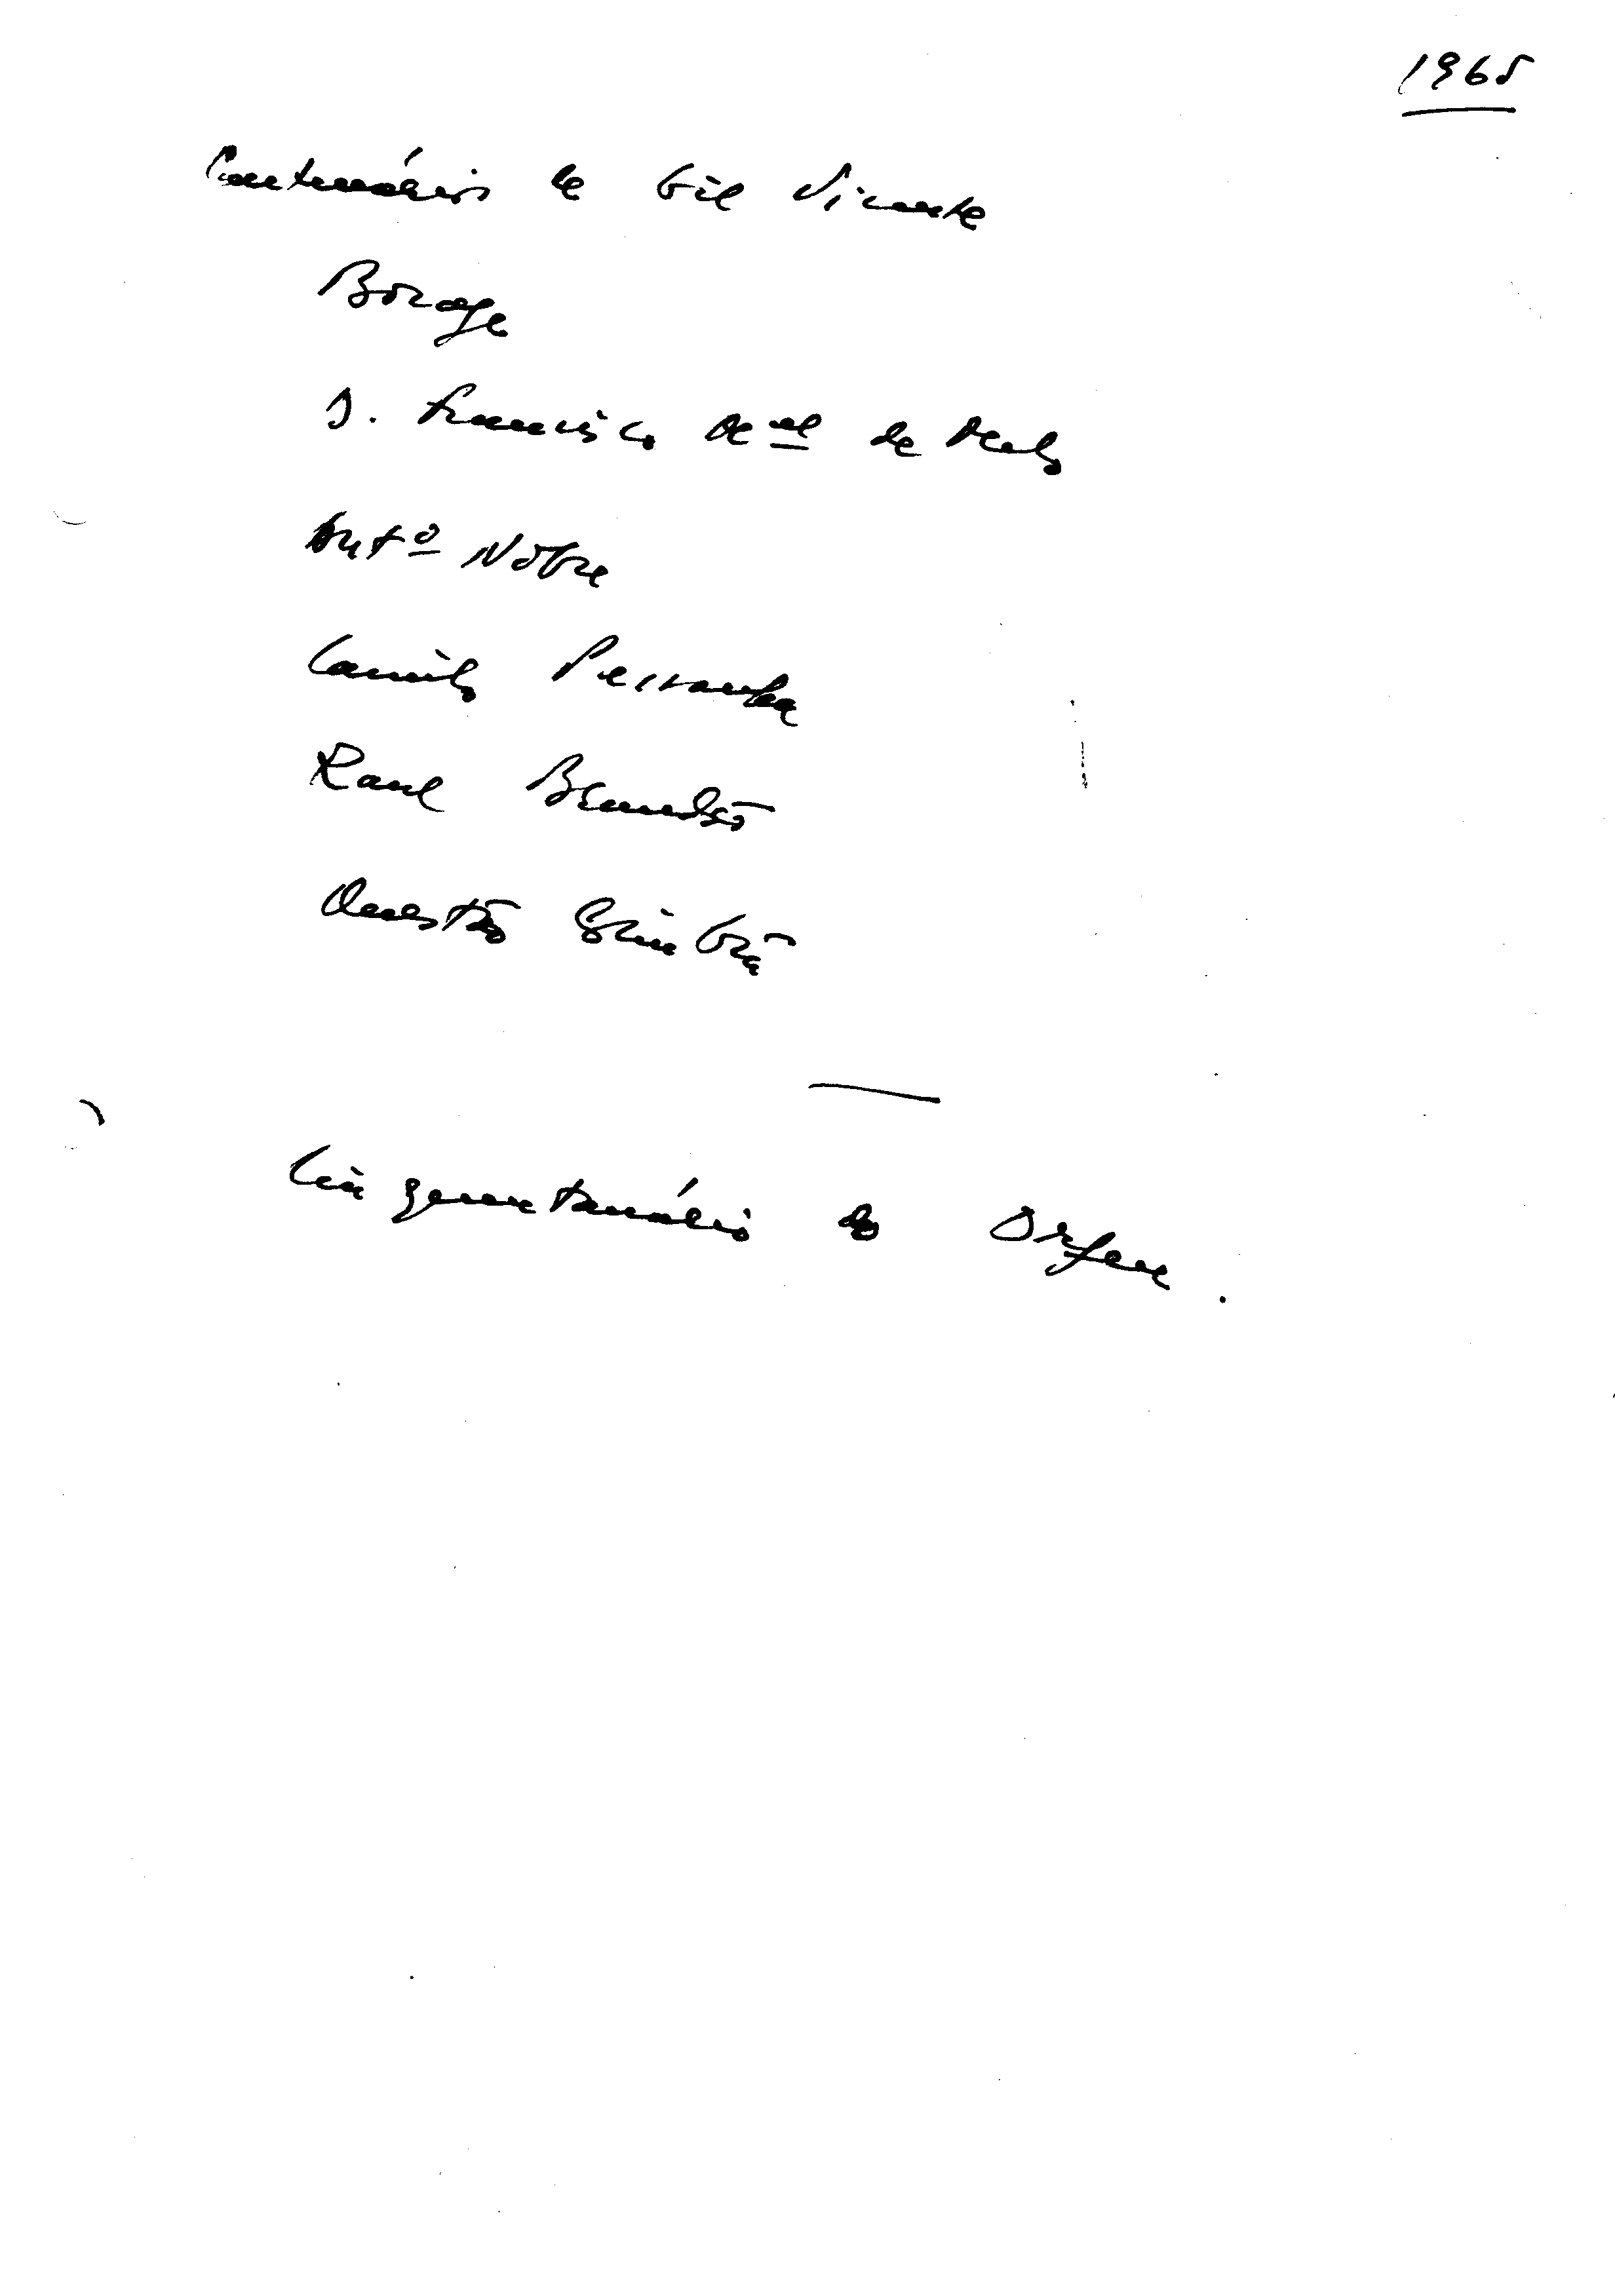 1965
Centenário de Gil Vicente
Bocage
D. Francisco Mel de Melo
Antº Nobre
Camilo Pessanha
Raul Brandão
Questão Coimbrã
Cinquentenário do Orfeu.